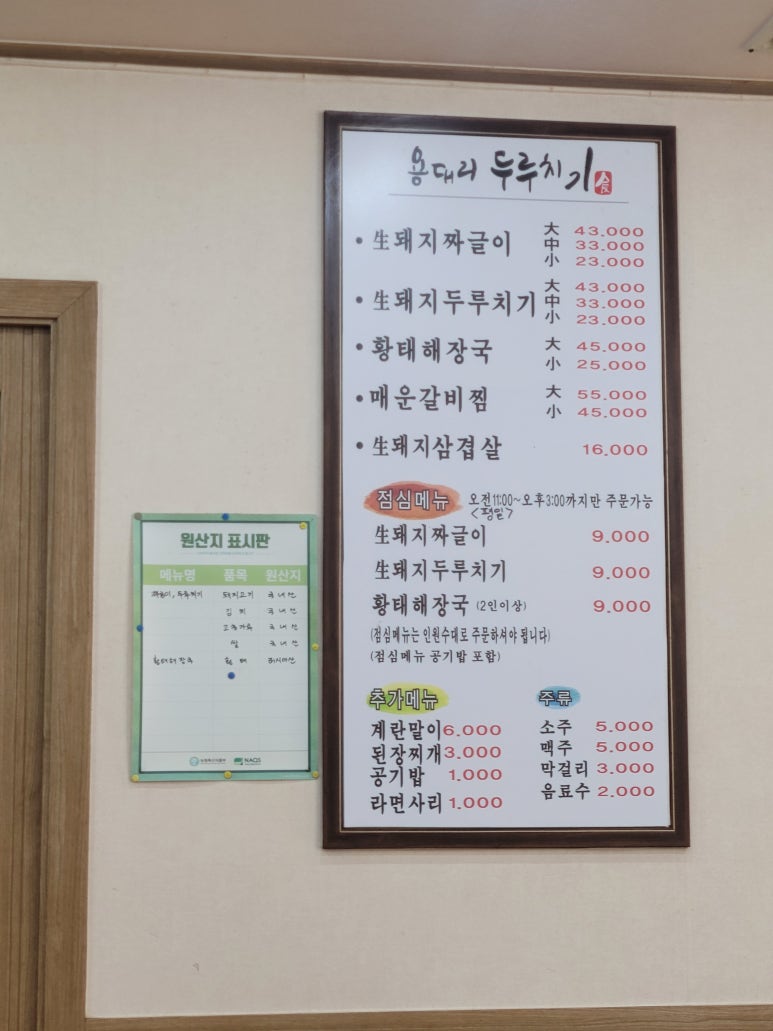 용대리 두루치기
• 生돼지짜글이 大 43.000
中 33.000
小 23.000
• 生돼지두루치기 大 43.000
中 33.000
小 23.000
• 황태해장국 大 45.000
小 25.000
• 매운갈비찜 大 55.000
小 45.000
• 生돼지삼겹살 16.000
점심메뉴 오전11:00~오후3:00까지만 주문가능
<평일>
生돼지짜글이 9.000
生돼지두루치기 9.000
황태해장국 (2인이상) 9.000
(점심메뉴는 인원수대로 주문하셔야 됩니다)
(점심메뉴 공기밥 포함)
추가메뉴
계란말이 6.000
된장찌개 3.000
공기밥 1.000
라면사리 1.000
주류
소주 5.000
맥주 5.000
막걸리 3.000
음료수 2.000
원산지 표시판
메뉴명 품목 원산지
짜글이, 두루치기 돼지고기 국내산
김치 국내산
고춧가루 국내산
쌀 국내산
황태해장국 황태 러시아산
NAQS